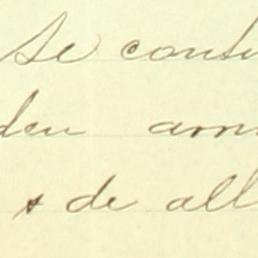 se conti
den am
& de all